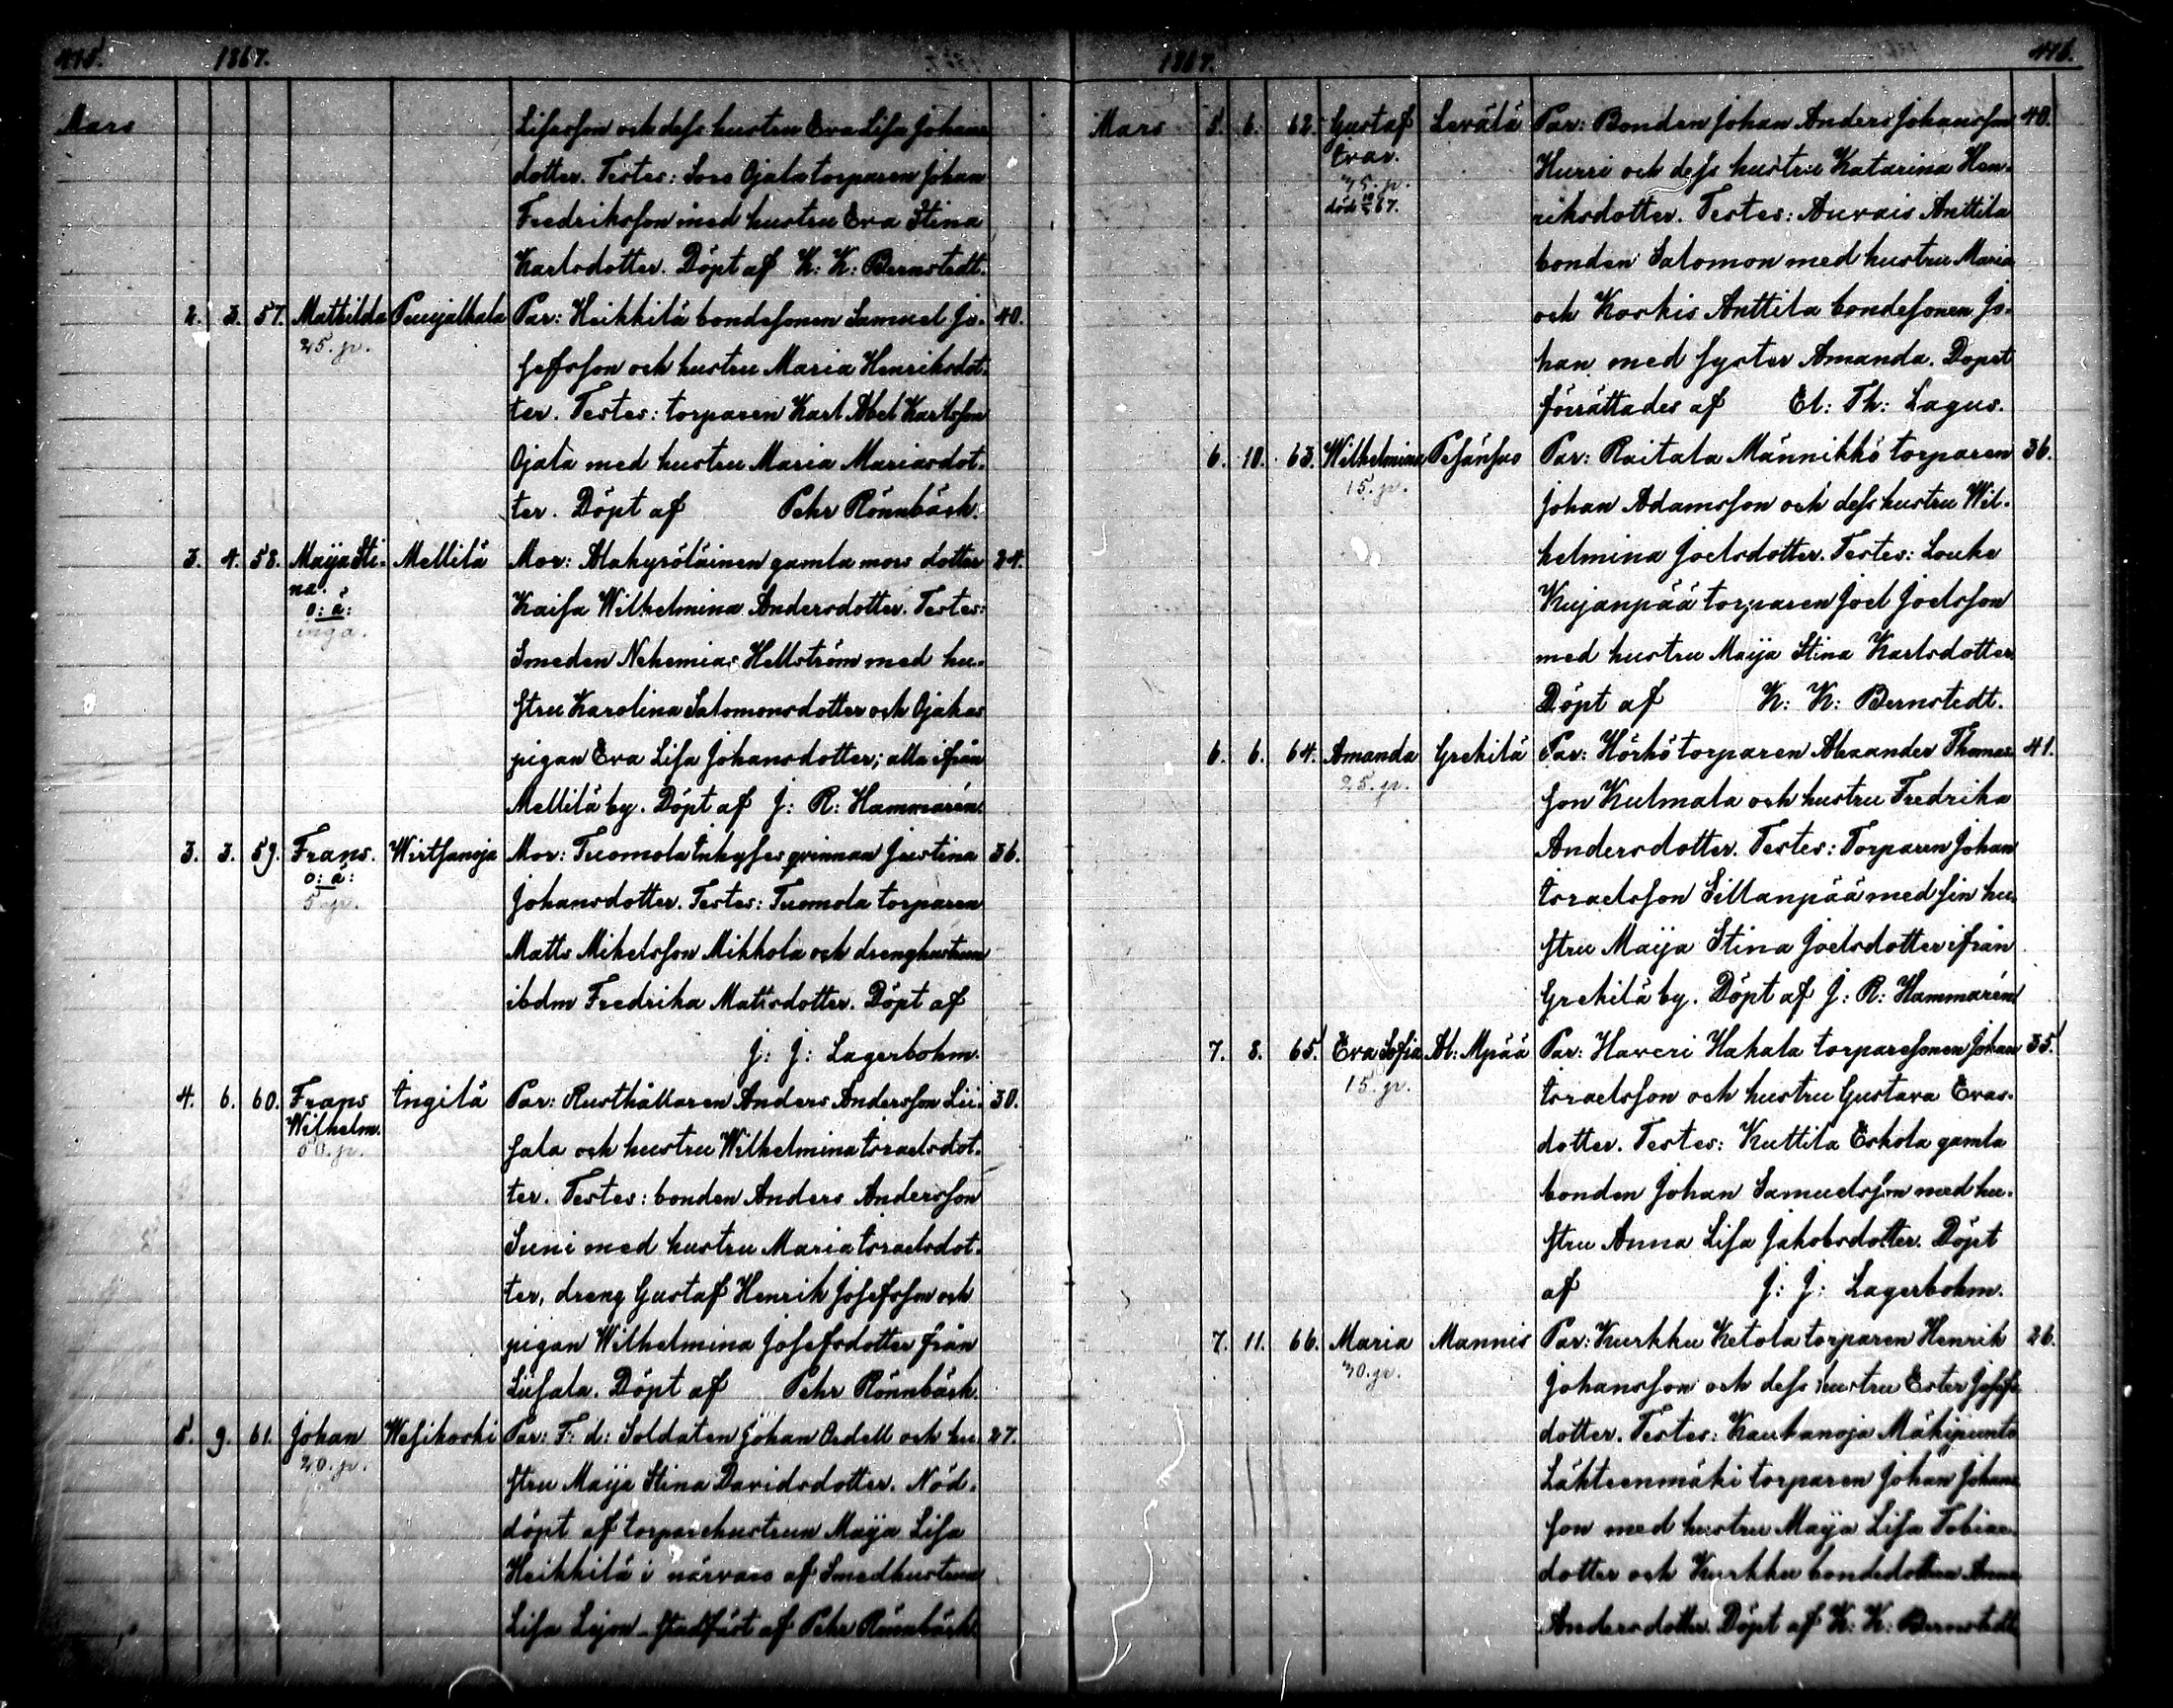 415. 1867.
Mars
Lisasson och dess hustru Eva Lisa Johans
dotter. Testes: Sors Ojala torparen Johan
Fredriksson med hustru Eva Stina
Karlsdotter. Döpt af K: K: Bernstedt.
2. 3. 57. Mathilda Punjalkala Par: Heikkilä bondesonen Samuel Jo- 40.
25. p. sefsson och hustru Maria Henriksdot-
ter. Testes: torparen Karl Abel Karlsson
Ojala med hustru Maria Mariasdot-
ter. Döpt af Pehr Rönnbäck.
3. 4. 58. Maija Sti- Mellilä Mor: Alakyröläinen gamla mors dotter 24.
na.
o: ä: Kaisa Wilhelmina Andersdotter. Testes:
inga.
Smeden Nehemias Hellström med hu-
stru Karolina Salomonsdotter och Ojakas
pigan Eva Lisa Johansdotter; alla ifrån
Mellilä by. Döpt af J: R: Hammarén.
3. 3. 59. Frans. Wirtsanoja Mor: Tuomola inhyses qvinnan Justina 36.
o: ä:
5 p. Johansdotter. Testes: Tuomola torparen
Matts Mikelsson Mikkola och drenghustrun
ibdm Fredrika Mattsdotter. Döpt af
J: J: Lagerbohm.
4. 6. 60. Frans Ingilä Par: Rusthållaren Anders Andersson Lii- 30.
Wilhelm.
50. p. sala och hustru Wilhelmina Israelsdot-
ter. Testes: bonden Anders Andersson
Suni med hustru Maria Israelsdot-
ter, dreng Gustaf Henrik Josefsson och
pigan Wilhelmina Josefsdotter från
Liisala. Döpt af Pehr Rönnbäck.
5. 9. 61. Johan Wesikoski Par: F: d: Soldaten Johan Ordell och hu- 27.
20. p. stru Maija Stina Davidsdotter. Nöd-
döpt af torparehustrun Maija Lisa
Heikkilä i närvaro af Smedhustrun
Lisa Lejon – stadfäst af Pehr Rönnbäck.
1867. 416.
Mars 5. 6. 62. Gustaf Levälä Par: Bonden Johan Anders Johansson 40.
Evar.
75. p. Hurri och dess hustru Katarina Hen-
död 67. riksdotter. Testes: Aurais Anttila
bonden Salomon med hustru Maria
och Korkis Anttila bondesonen Jo-
han med syster Amanda. Dopet
förrättades af El: Th: Lagus.
6. 10. 63. Wilhelmina Pesänsuo Par: Raitala Männikkö torparen 36.
15. p. Johan Adamsson och dess hustru Wil-
helmina Joelsdotter. Testes: Louke
Kujanpää torparen Joel Joelsson
med hustru Maija Stina Karlsdotter
Döpt af K: K: Bernstedt.
6. 6. 64. Amanda Grekilä Par: Hörkö torparen Alexander Thomas- 41.
25. p. son Kulmala och hustru Fredrika
Andersdotter. Testes: Torparen Johan
Israelsson Sillanpää med sin hu-
stru Maija Stina Joelsdotter ifrån
Grekilä by. Döpt af J: R: Hammarén
7. 8. 65. Eva Sofia Al: Mpää Par: Haveri Hakala torparesonen Johan 35.
15. p. Israelsson och hustru Gustava Evas-
dotter. Testes: Kuttila Eskola gamla
bonden Johan Samuelsson med hu-
stru Anna Lisa Jakobsdotter. Döpt
af J: J: Lagerbohm.
7. 11. 66. Maria Mannis Par: Kurkku Ketola torparen Henrik 26.
30. p. Johansson och dess hustru Ester Josefs
dotter. Testes: Kautanoja Mäkipunto
Lähteenmäki torparen Johan Johans
son med hustru Maija Lisa Tobias-
dotter och Kurkku bondedottren Anna
Andersdotter. Döpt af K: K: Bernstedt.